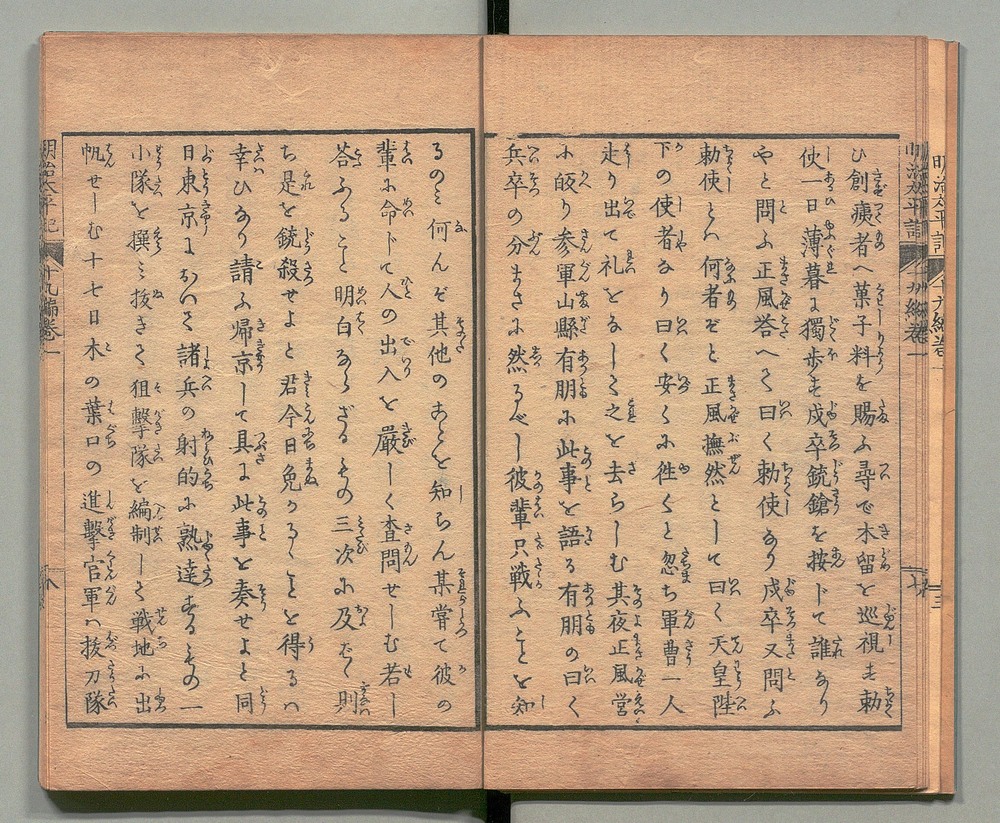 明治太平記 十九編巻一
ひ創痍者へ菓子料を賜ふ尋で木留を巡視す勅
使一日薄暮に獨歩す戍卒銃鎗を按じて誰なり
やと問ふ正風答へて曰く勅使なり戍卒又問ふ
勅使とハ何者ぞと正風撫然として曰く天皇陛
下の使者なり曰く安くに徃くと忽ち軍曹一人
走り出て礼をなして之を去らしむ其夜正風営
に皈り参軍山縣有朋に此事を語る有朋の曰く
兵卒の分まさに然るべし彼輩只戦ふことを知
るのミ何んぞ其他のことを知らん某嘗て彼の
輩に命じて人の出入を嚴しく査問せしむ若し
答ふること明白ならざるもの三次に及べバ則
ち是を銃殺せよと君今日免かるゝことを得るハ
幸ひなり請ふ帰京して具に此事を奏せよと同
日東京に於て諸兵の射的に熟達するもの一
小隊を撰ミ抜きて狙撃隊を編制して戦地に出
帆せしむ十七日木の葉口の進撃官軍ハ抜刀隊
明治太平記 十九編巻一 八